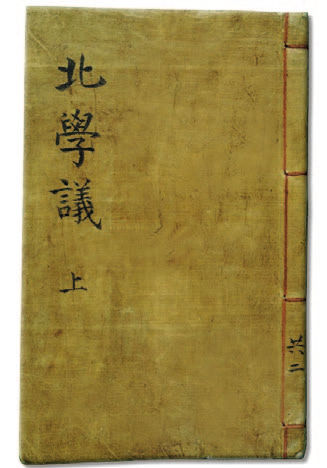 北學議
上
共二